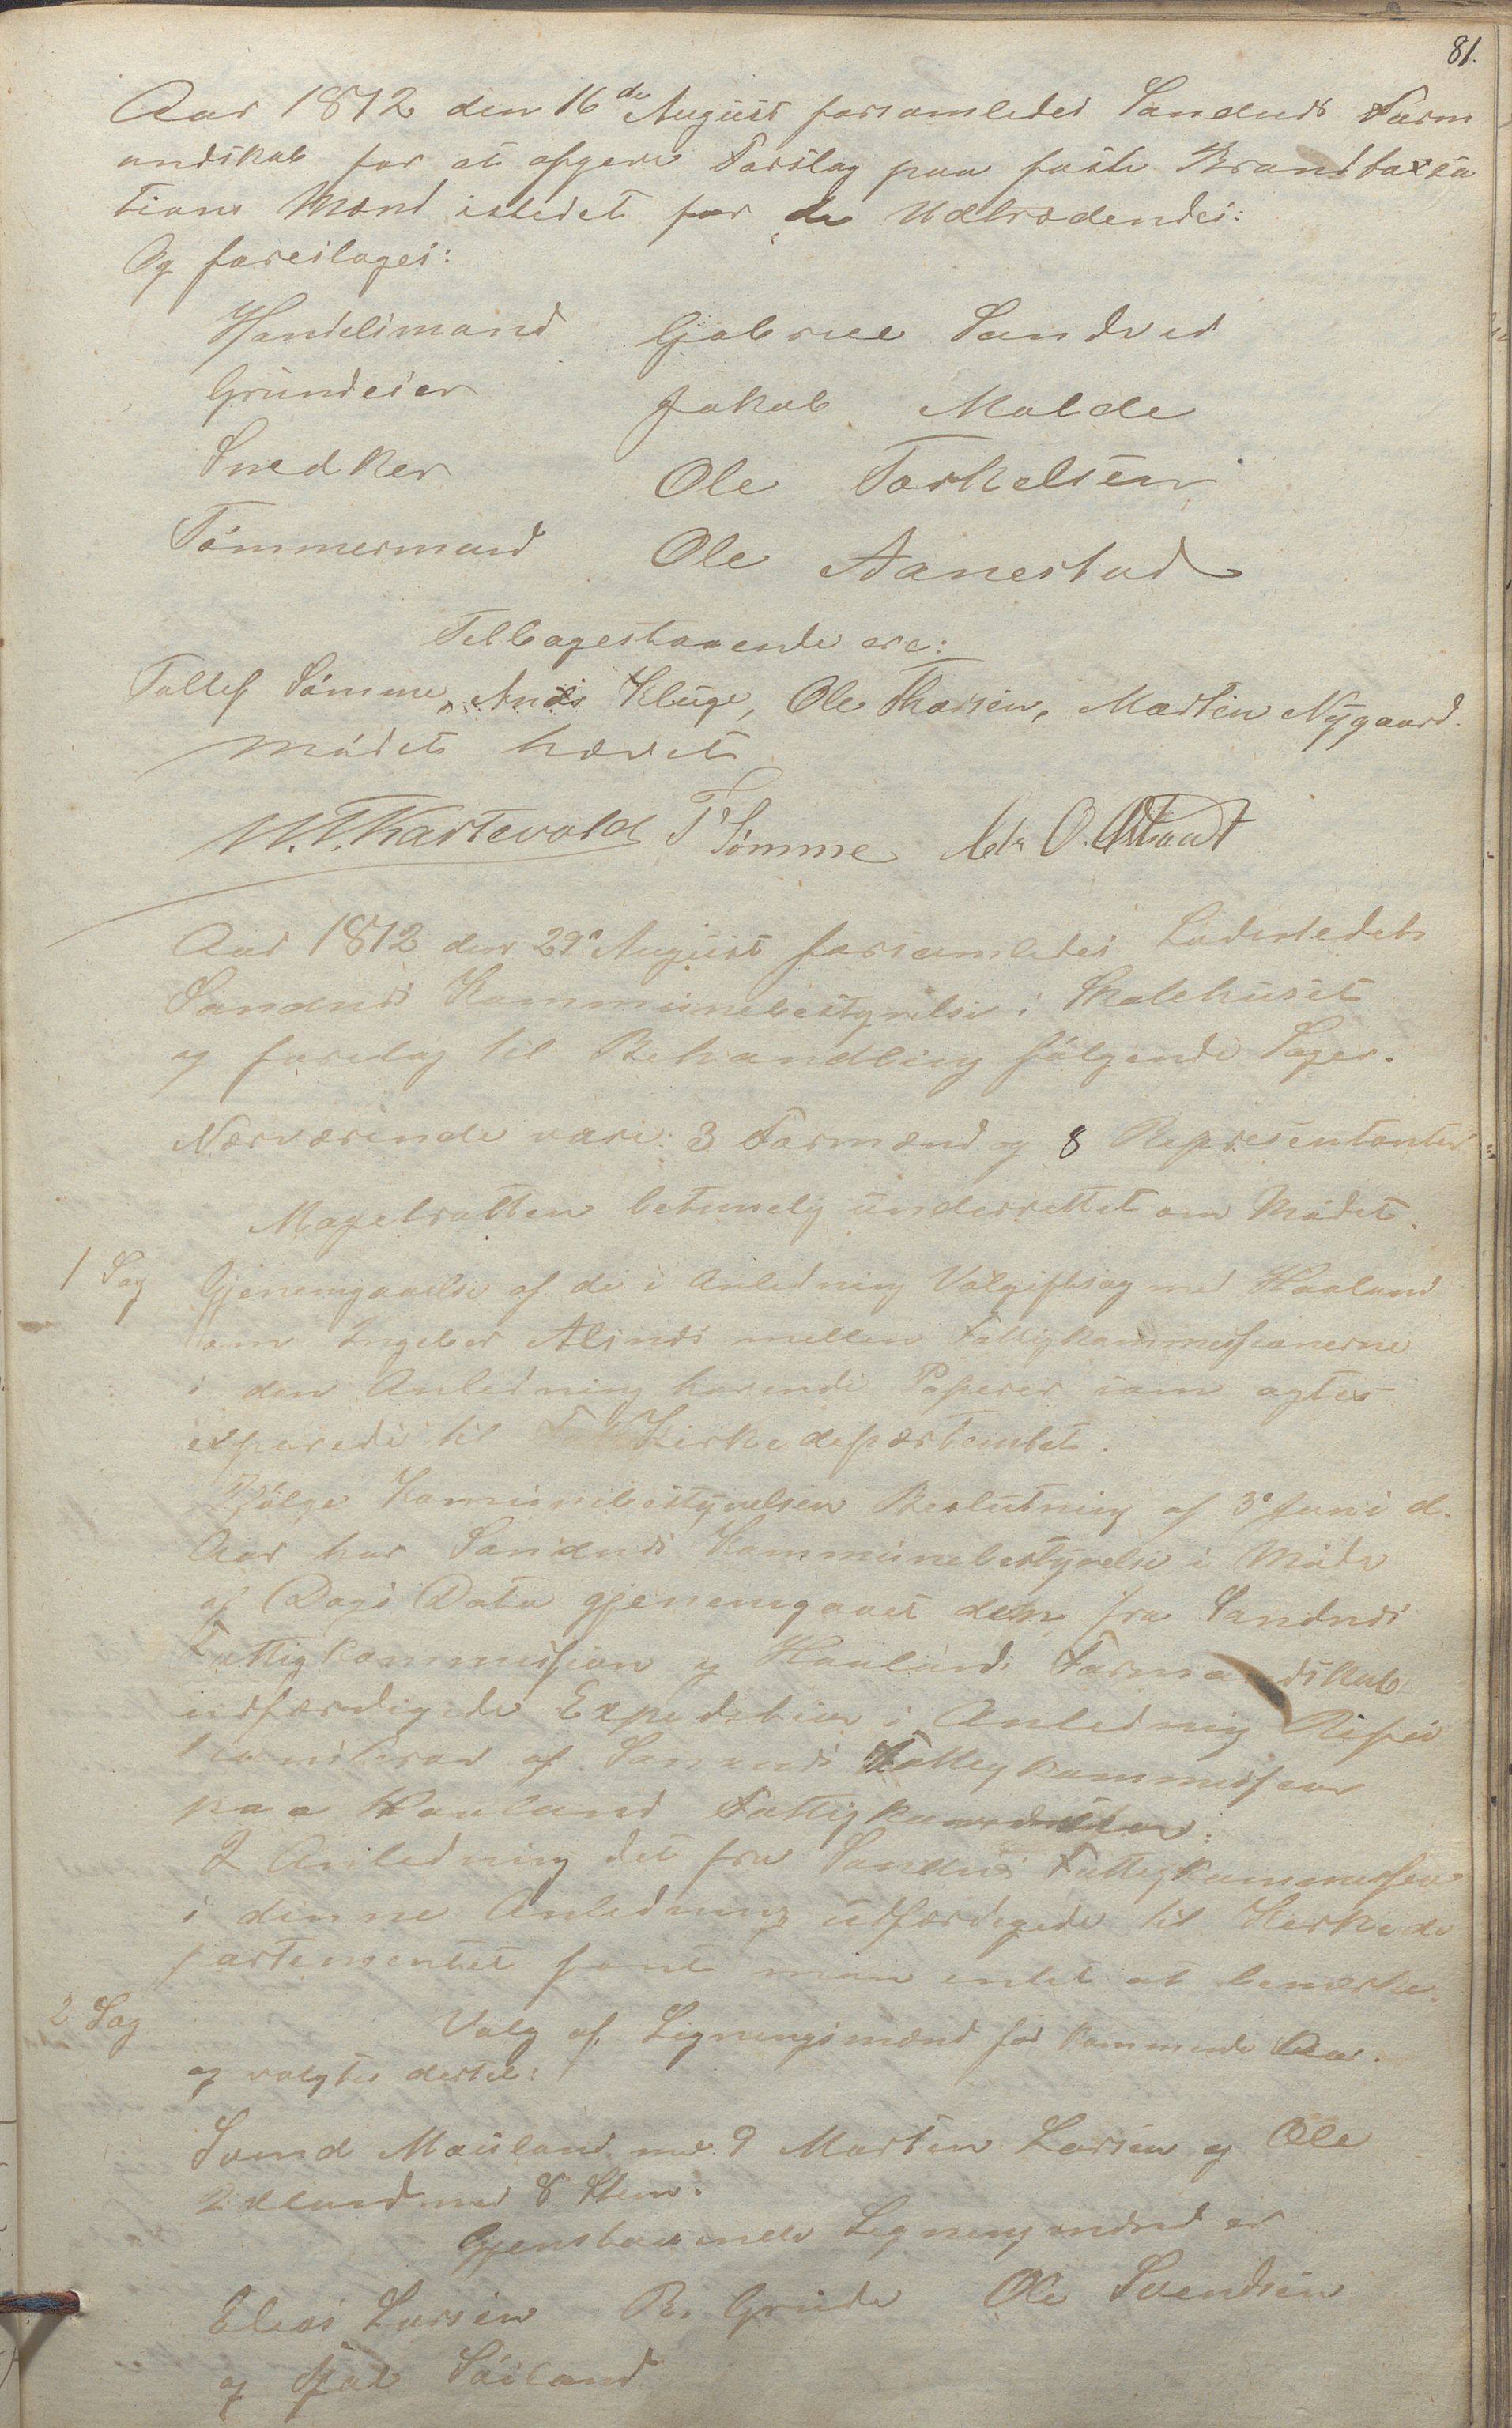 81.
Aar 1872 den 16de August forsamledes Sandnæs Form
andskab for at afgive Forslag paa faste Brandtaxta
tions Mænd istedet for de Udtrædendes:
Og foreslages:
Handelsmand Gabriel Sandved
Grundeier Jakob Malde
Snedker Ole Torkelsen
Tömmermand Ole Aanestad
Tilbagestaaende ere:
Tollef Sömme, Ands Kluge, Ole Thorsen, Martin Nygaard.
Mödet hævet
T. Sömme O.
Aar 1872 den 29de August forsamledes Ladestedets
Sandnæs Kommunebestyrelse i Skolehuset
og foretog til Behandling følgende Sager.
Nærværende vare: 3 Formænd og 8 Repræsentanter
Magistratten betimelig underrettet om Mödet.
1 Sag Gjenemgaaelse af de i Anledning Valgiftssag med Haaland
om Ingeb mellem Fattigkommissionerne
i den Anledning havende Papirer som agtes
experede til Kirkedepartemtet.
Ifölge Komunebestyrelsen Beslutning af 3de Juni d.
Aar har Sandnæs Kommunebestyrelse i Möde
af Dags Dato gjenemgaaet den fra Sandnæs
Fattigkommission og Haalands Formandskab
udfærdigede Expedition i Anledning
af Sandnæs Fattigkommission
paa Haaland Fattigkommission:
I Anledning det fra Sandnæs Fattigkommission
i denne Anledning udfærdigede til Kirkede
partementet fant man intet at bemærke.
2 Sag Valg af Ligningsmænd for kommende Aar.
og valgtes dertil:
Svend Mauland med 9 Morten Larsen og Ole
Ueland med 8 Stem.
Gjenstaaende Ligningsmænd er
Elias Larsen R. Grude Ole Svendsen
og Sjal Söiland